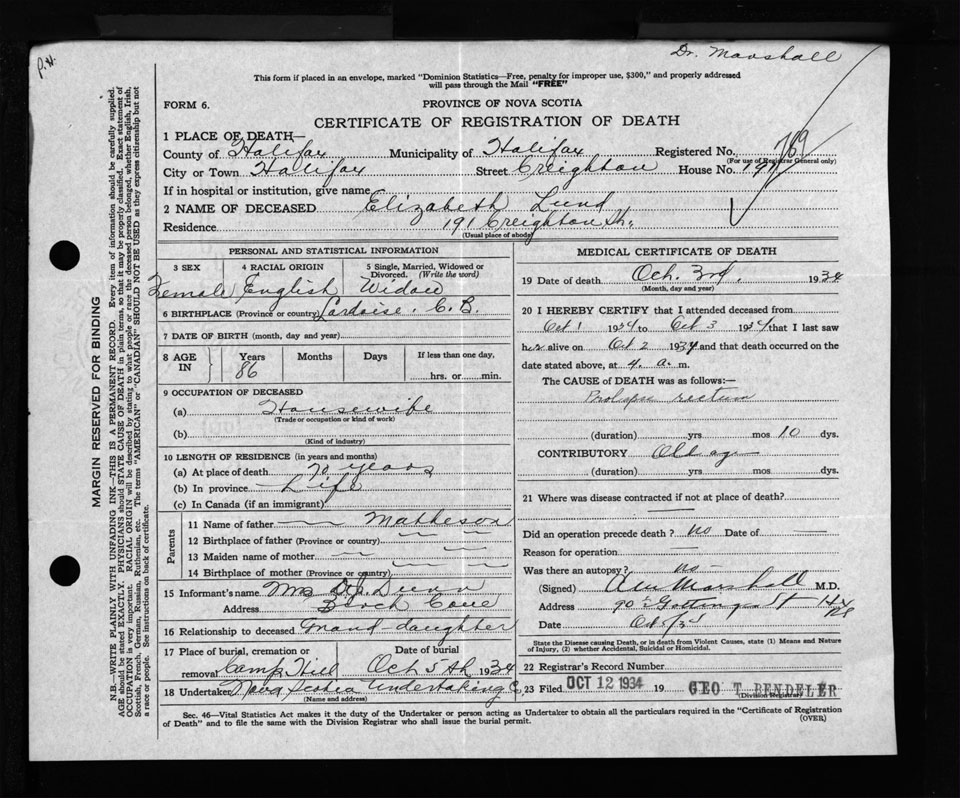 Dr. Marshall
P.H.
This form if placed in an envelope, marked "Dominion Statistics—Free, penalty for improper use, $300," and properly addressed
will pass through the Mail "FREE"
FORM 6.
PROVINCE OF NOVA SCOTIA
CERTIFICATE OF REGISTRATION OF DEATH
1 PLACE OF DEATH—
County of Halifax Municipality of Halifax Registered No. 789
(For use of Registrar General only)
City or Town Halifax Street Creighton House No. 191
If in hospital or institution, give name
2 NAME OF DECEASED Elizabeth Lund
Residence 191 Creighton St.
(Usual place of abode)
PERSONAL AND STATISTICAL INFORMATION
3 SEX 4 RACIAL ORIGIN 5 Single, Married, Widowed or Divorced. (Write the word)
Female English Widow
6 BIRTHPLACE (Province or country) Lardoise. C.B.
7 DATE OF BIRTH (month, day and year)
8 AGE IN Years Months Days If less than one day,
86 hrs. or min.
9 OCCUPATION OF DECEASED
(a) Housewife
(Trade or occupation or kind of work)
(b)
(Kind of industry)
10 LENGTH OF RESIDENCE (in years and months)
(a) At place of death 70 years
(b) In province Life
(c) In Canada (if an immigrant)
Parents
11 Name of father — — Matheson
12 Birthplace of father (Province or country)
13 Maiden name of mother
14 Birthplace of mother (Province or country)
15 Informant's name Mrs Dunn
Address Birch Cove
16 Relationship to deceased Grand-daughter
17 Place of burial, cremation or removal Camp Hill Date of burial Oct 5th 1934
18 Undertaker Nova Scotia Undertaking Co
(Name and address)
MEDICAL CERTIFICATE OF DEATH
19 Date of death Oct. 3rd. 1934
(Month, day and year)
20 I HEREBY CERTIFY that I attended deceased from
Oct 1 1934 to Oct 3 1934 that I last saw
her alive on Oct 2 1934 and that death occurred on the
date stated above, at 4. a. m.
The CAUSE of DEATH was as follows:—
Prolapse rectum
(duration) yrs mos 10 dys.
CONTRIBUTORY Old age
(duration) yrs mos dys.
21 Where was disease contracted if not at place of death?
Did an operation precede death? no Date of
Reason for operation
Was there an autopsy? no
(Signed) Marshall M.D.
Address 90 Gottingen St Hx
Date Oct 5/35
State the Disease causing Death, or in death from Violent Causes, state (1) Means and Nature
of Injury, (2) whether Accidental, Suicidal or Homicidal.
22 Registrar's Record Number
23 Filed OCT 12 1934 19 GEO T. BENDELER
Division Registrar
Sec. 46—Vital Statistics Act makes it the duty of the Undertaker or person acting as Undertaker to obtain all the particulars required in the "Certificate of Registration
of Death" and to file the same with the Division Registrar who shall issue the burial permit.
(OVER)
MARGIN RESERVED FOR BINDING
N.B.—WRITE PLAINLY WITH UNFADING INK—THIS IS A PERMANENT RECORD. Every item of information should be carefully supplied.
AGE should be stated EXACTLY. PHYSICIANS should STATE CAUSE OF DEATH in plain terms, so that it may be properly classified. Exact statement of
OCCUPATION is very important. RACIAL ORIGIN will be described by stating to what people or race the deceased person belonged, whether English, Irish,
Scottish, French, German, Russian, Ruthenian, etc. The terms "AMERICAN" or "CANADIAN" SHOULD NOT BE USED as they express citizenship but not
a race or people. See instructions on back of certificate.